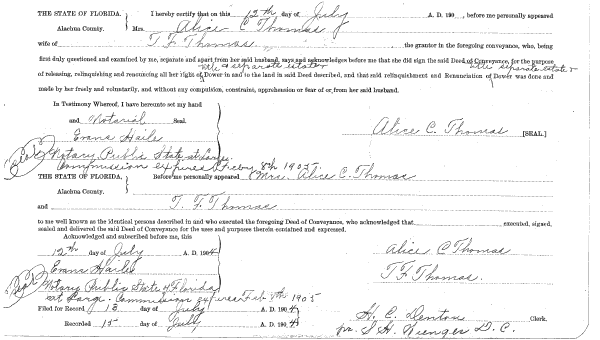 THE STATE OF FLORIDA. I hereby certify that on this 12th day of July A. D. 190 , before me personally appeared
Alachua County. Mrs. Alice C Thomas
wife of T. F. Thomas the grantor in the foregoing conveyance, who, being
first duly questioned and examined by me, separate and apart from her said husband, says and acknowledges before me that she did sign the said Deed of Conveyance, for the purpose
title & separate estate title separate estate &
of releasing, relinquishing and renouncing all her right of Dower in and to the land in said Deed described, and that said relinquishment and Renunciation of Dower was done and
made by her freely and voluntarily, and without any compulsion, constraint, apprehension or fear of or from her said husband.
In Testimony Whereof, I have hereunto set my hand
and Notarial Seal. Alice C. Thomas [SEAL.]
Evans Haile
Seal Notary Public State at Large.
Commission expires 8th 1905
THE STATE OF FLORIDA. Before me personally appeared Mrs. Alice C. Thomas
Alachua County.
and T. F. Thomas
to me well known as the identical persons described in and who executed the foregoing Deed of Conveyance, who acknowledged that executed, signed,
sealed and delivered the said Deed of Conveyance for the uses and purposes therein contained and expressed.
Acknowledged and subscribed before me, this
12th day of July A. D. 1904 Alice C Thomas
Evans Haile T F Thomas.
Seal Notary Public State of Florida
at Large. Commission expires Feb 8th 1905
Filed for Record 13 day of July A. D. 1904 H. C. Denton Clerk.
Recorded 15 day of July A. D. 1904 pr. S. H. Wienges D. C.